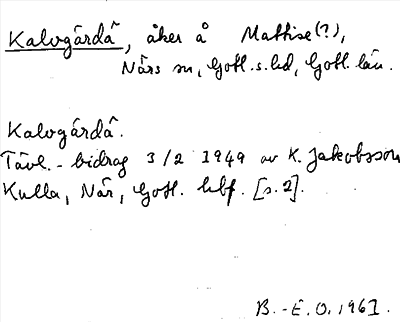 Kalvgårdå, åker å Mattise(?),
Närs sn, Gotl. s. hd, Gotl. län.
Kalvgårdå.
Tävl.-bidrag 3/2 1949 av K. Jakobsson
Kulla, När, Gotl. hbf. [s. 2].
B.-E.O. 1961.